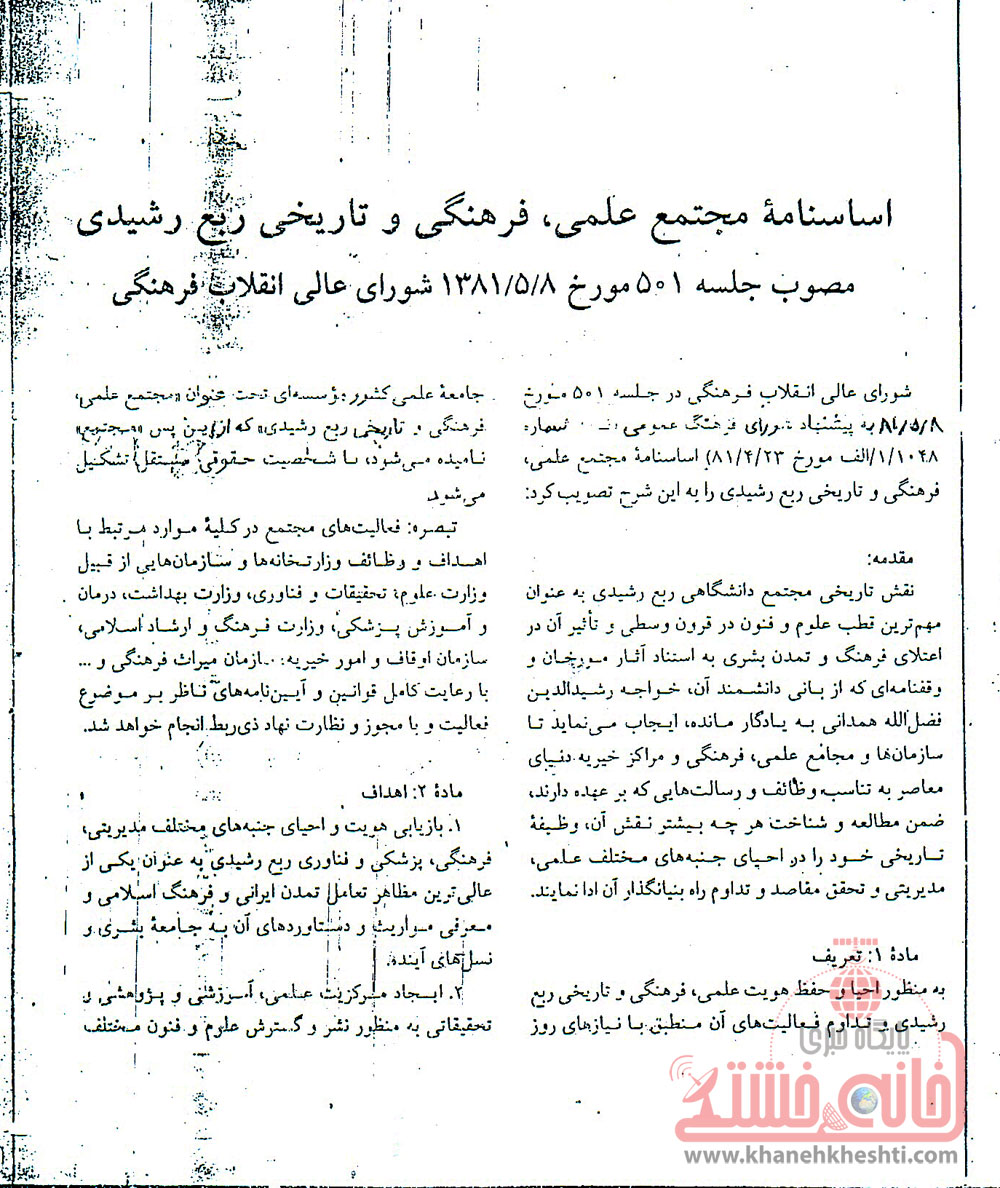 اساسنامهٔ مجتمع علمی، فرهنگی و تاریخی ربع رشیدی
مصوب جلسه ۵۰۱ مورخ ۱۳۸۱/۵/۸ شورای عالی انقلاب فرهنگی
شورای عالی انقلاب فرهنگی در جلسه ۵۰۱ مورخ
۸۱/۵/۸ به پیشنهاد شورای فرهنگ عمومی شماره
۱/۱۰۴۸/الف مورخ ۸۱/۴/۲۳) اساسنامهٔ مجتمع علمی،
فرهنگی و تاریخی ربع رشیدی را به این شرح تصویب کرد:
مقدمه:
نقش تاریخی مجتمع دانشگاهی ربع رشیدی به عنوان
مهم‌ترین قطب علوم و فنون در قرون وسطی و تأثیر آن در
اعتلای فرهنگ و تمدن بشری به استناد آثار مورخان و
وقفنامه‌ای که از بانی دانشمند آن، خواجه رشیدالدین
فضل‌الله همدانی به یادگار مانده، ایجاب می‌نماید تا
سازمان‌ها و مجامع علمی، فرهنگی و مراکز خیریه دنیای
معاصر به تناسب وظائف و رسالت‌هایی که بر عهده دارند،
ضمن مطالعه و شناخت هر چه بیشتر نقش آن، وظیفهٔ
تاریخی خود را در احیای جنبه‌های مختلف علمی،
مدیریتی و تحقق مقاصد و تداوم راه بنیانگذار آن ادا نمایند.
مادهٔ ۱: تعریف
به منظور احیا و حفظ هویت علمی، فرهنگی و تاریخی ربع
رشیدی و تداوم فعالیت‌های آن منطبق با نیازهای روز
جامعهٔ علمی کشور مؤسسه‌ای تحت عنوان «مجتمع علمی،
فرهنگی و تاریخی ربع رشیدی» که از این پس «مجتمع»
نامیده می‌شود، با شخصیت حقوقی مستقل تشکیل
می‌شود.
تبصره: فعالیت‌های مجتمع در کلیهٔ موارد مرتبط با
اهداف و وظائف وزارتخانه‌ها و سازمان‌هایی از قبیل
وزارت علوم، تحقیقات و فناوری، وزارت بهداشت، درمان
و آموزش پزشکی، وزارت فرهنگ و ارشاد اسلامی،
سازمان اوقاف و امور خیریه، سازمان میراث فرهنگی و ...
با رعایت کامل قوانین و آیین‌نامه‌های ناظر بر موضوع
فعالیت و با مجوز و نظارت نهاد ذی‌ربط انجام خواهد شد.
مادهٔ ۲: اهداف
۱. بازیابی هویت و احیای جنبه‌های مختلف مدیریتی،
فرهنگی، پزشکی و فناوری ربع رشیدی به عنوان یکی از
عالی‌ترین مظاهر تعامل تمدن ایرانی و فرهنگ اسلامی و
معرفی مواریث و دستاوردهای آن به جامعهٔ بشری و
نسل‌های آینده.
۲. ایجاد مرکزیت علمی، آموزشی و پژوهشی و
تحقیقاتی به منظور نشر و گسترش علوم و فنون مختلف
پایگاه خبری
خانه خشتی
www.khanehkheshti.com